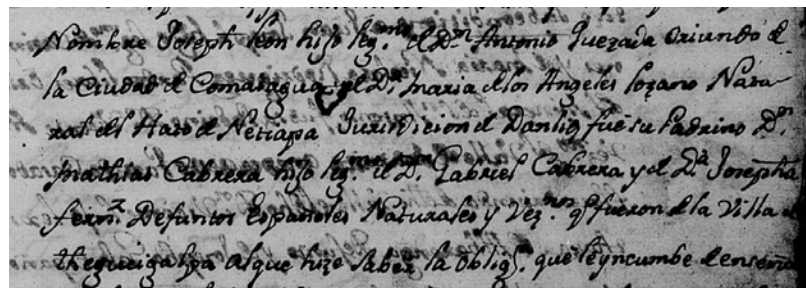 Nombre Joseph leon hijo leg.mo de D.n Antonio Quezada Oriundo de
la Ciudad de Comayagua y de D.a Maria de los Angeles lozano Natu
ral del Hato de Jurisdicion de Danlig fue su Padrino D.n
Mathias Cabrera hijo leg.mo de D.n Gabriel Cabrera y de D.a Josepha
ferm.z Defuntos Españoles Naturales y Vez.nos q.e fueron de la Villa de
thegucigalpa al que hize saber la Oblig.n que le yncumbe de